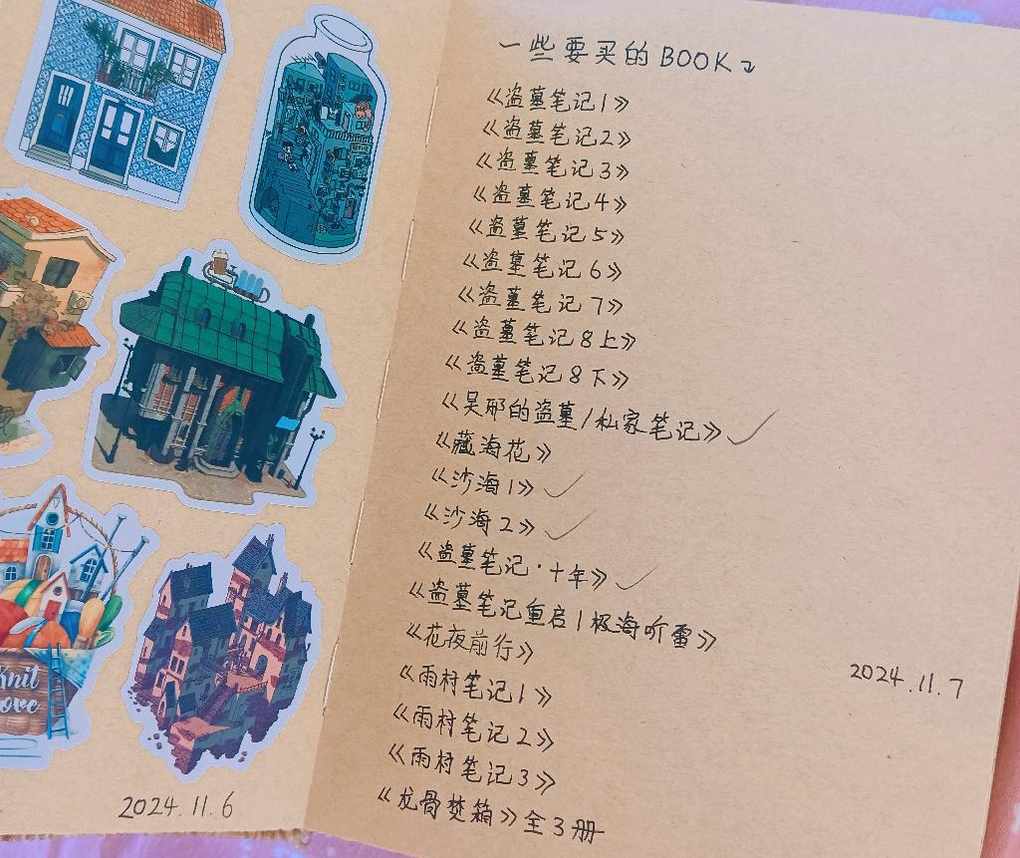 knit
love
2024.11.6
一些要买的BOOK
《盗墓笔记1》
《盗墓笔记2》
《盗墓笔记3》
《盗墓笔记4》
《盗墓笔记5》
《盗墓笔记6》
《盗墓笔记7》
《盗墓笔记8上》
《盗墓笔记8下》
《吴邪的盗墓/私家笔记》
《藏海花》
《沙海1》
《沙海2》
《盗墓笔记·十年》
《盗墓笔记重启/极海听雷》
《花夜前行》
《雨村笔记1》
《雨村笔记2》
《雨村笔记3》
《龙骨焚箱》全3册
2024.11.7